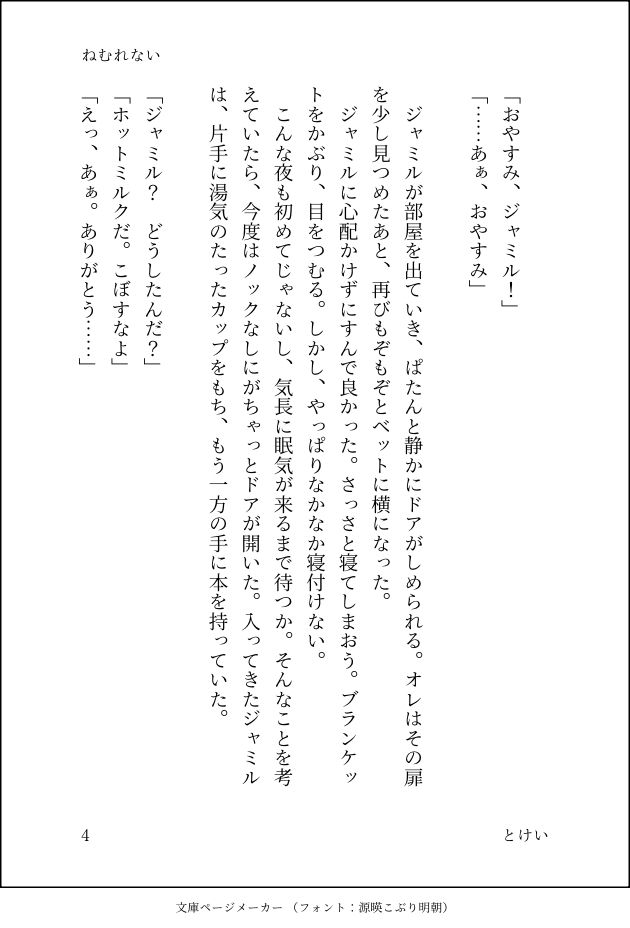 ねむれない
「おやすみ、ジャミル！」
「……あぁ、おやすみ」
ジャミルが部屋を出ていき、ぱたんと静かにドアがしめられる。オレはその扉
を少し見つめたあと、再びもぞもぞとベットに横になった。
ジャミルに心配かけずにすんで良かった。さっさと寝てしまおう。ブランケッ
トをかぶり、目をつむる。しかし、やっぱりなかなか寝付けない。
こんな夜も初めてじゃないし、気長に眠気が来るまで待つか。そんなことを考
えていたら、今度はノックなしにがちゃっとドアが開いた。入ってきたジャミル
は、片手に湯気のたったカップをもち、もう一方の手に本を持っていた。
「ジャミル？　どうしたんだ？」
「ホットミルクだ。こぼすなよ」
「えっ、あぁ。ありがとう……」
4
とけい
文庫ページメーカー （フォント：源暎こぶり明朝）